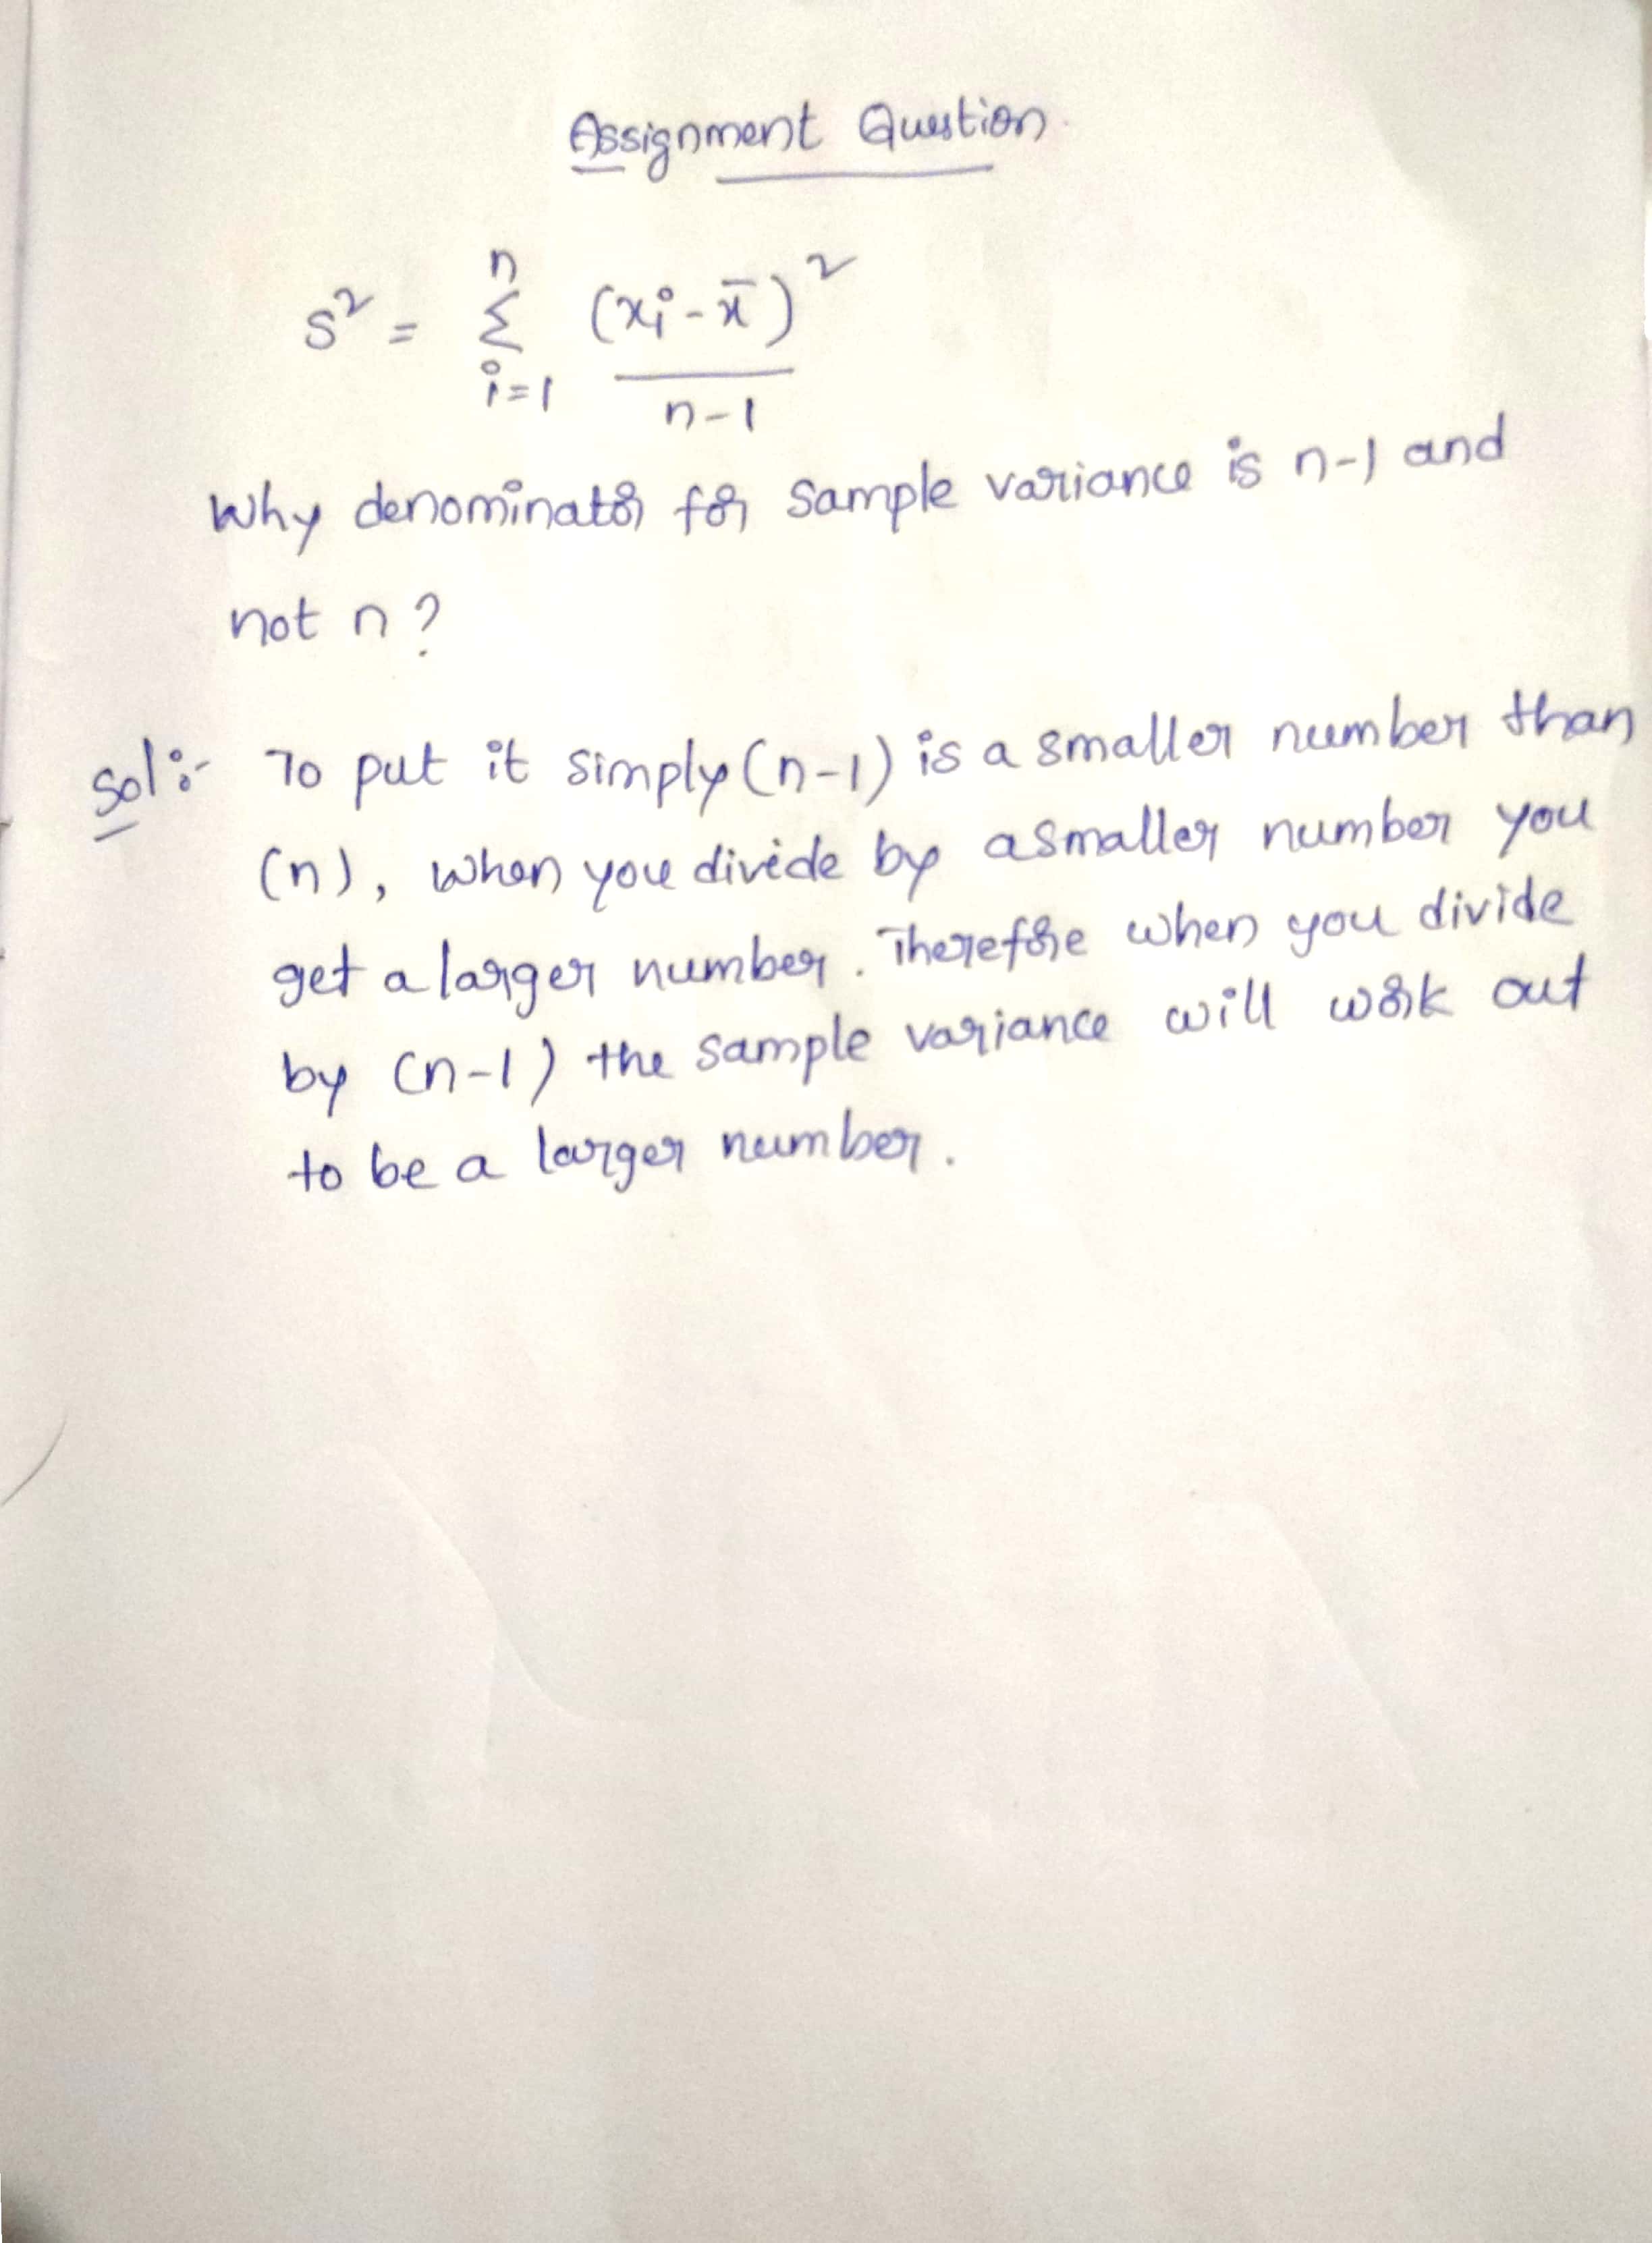 Assignment Question
s² = n Σ i=1 (xi - x̄)² / n-1
Why denominator for sample variance is n-1 and
not n?
Sol:- To put it simply (n-1) is a smaller number than
(n), when you divide by a smaller number you
get a larger number. Therefore when you divide
by (n-1) the sample variance will work out
to be a larger number.